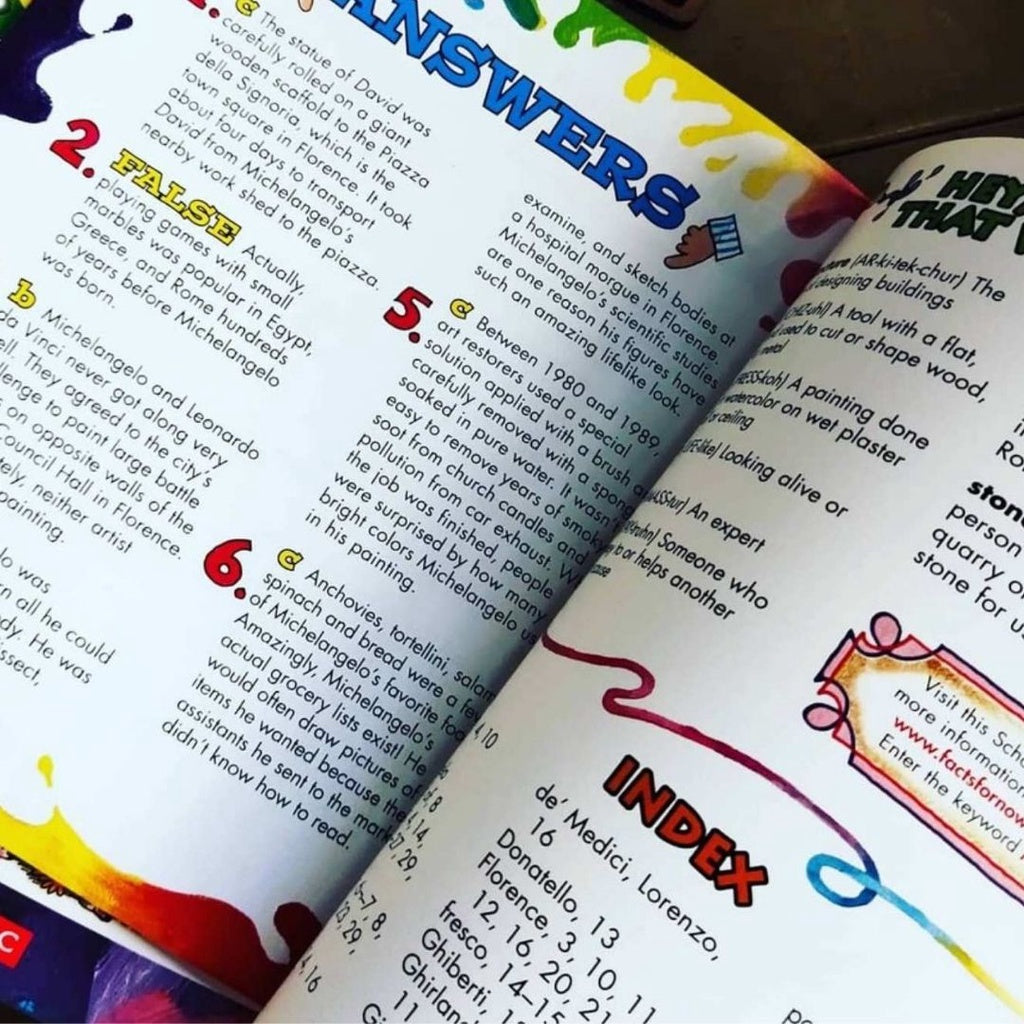 ANSWERS
1. c The statue of David was
carefully rolled on a giant
wooden scaffold to the Piazza
della Signoria, which is the
town square in Florence. It took
about four days to transport
David from Michelangelo's
nearby work shed to the piazza.
2. FALSE Actually,
playing games with small
marbles was popular in Egypt,
Greece, and Rome hundreds
of years before Michelangelo
was born.
b Michelangelo and Leonardo
da Vinci never got along very
They agreed to the city's
to paint large battle
on opposite walls of the
Council Hall in Florence.
neither artist
painting.
was
all he could
He was
examine, and sketch bodies at
a hospital morgue in Florence.
Michelangelo's scientific studies
are one reason his figures have
such an amazing lifelike look.
5. c Between 1980 and 1989,
art restorers used a special
solution applied with a brush
carefully removed with a
soaked in pure water. It wasn't
easy to remove years of smoky
soot from church candles and
pollution from car exhaust.
the job was finished, people
were surprised by how many
bright colors Michelangelo
in his painting.
6. c Anchovies, tortellini,
spinach and bread were a few
of Michelangelo's favorite
Amazingly, Michelangelo's
actual grocery lists exist! He
would often draw pictures of
items he wanted because the
assistants he sent to the
didn't know how to read.
C
HEY
THAT
(AR-ki-tek-chur) The
designing buildings
A tool with a flat,
used to cut or shape wood,
A painting done
watercolor on wet plaster
or ceiling
Looking alive or
An expert
Someone who
or helps another
ston
person
quarry
stone for
Visit this
more information
www.factsfornow
Enter the keyword
INDEX
10
8
14,
29,
8,
29,
16
de' Medici, Lorenzo,
16
Donatello, 13
Florence, 3, 10, 11
12, 16, 20, 21
fresco, 14–15
Ghiberti,
11